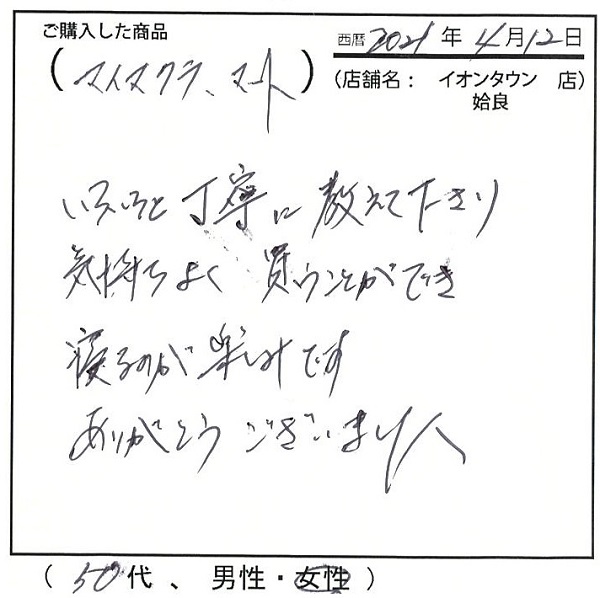 ご購入した商品
西暦 2021 年 4月12日
(マイメクラ、マート)
(店舗名: イオンタウン 店)
姶良
いろいろと丁寧に教えて下さり
気持ちよく 買うことができ
寝るのが楽しみです
ありがとう ございました
(50代、男性・女性)